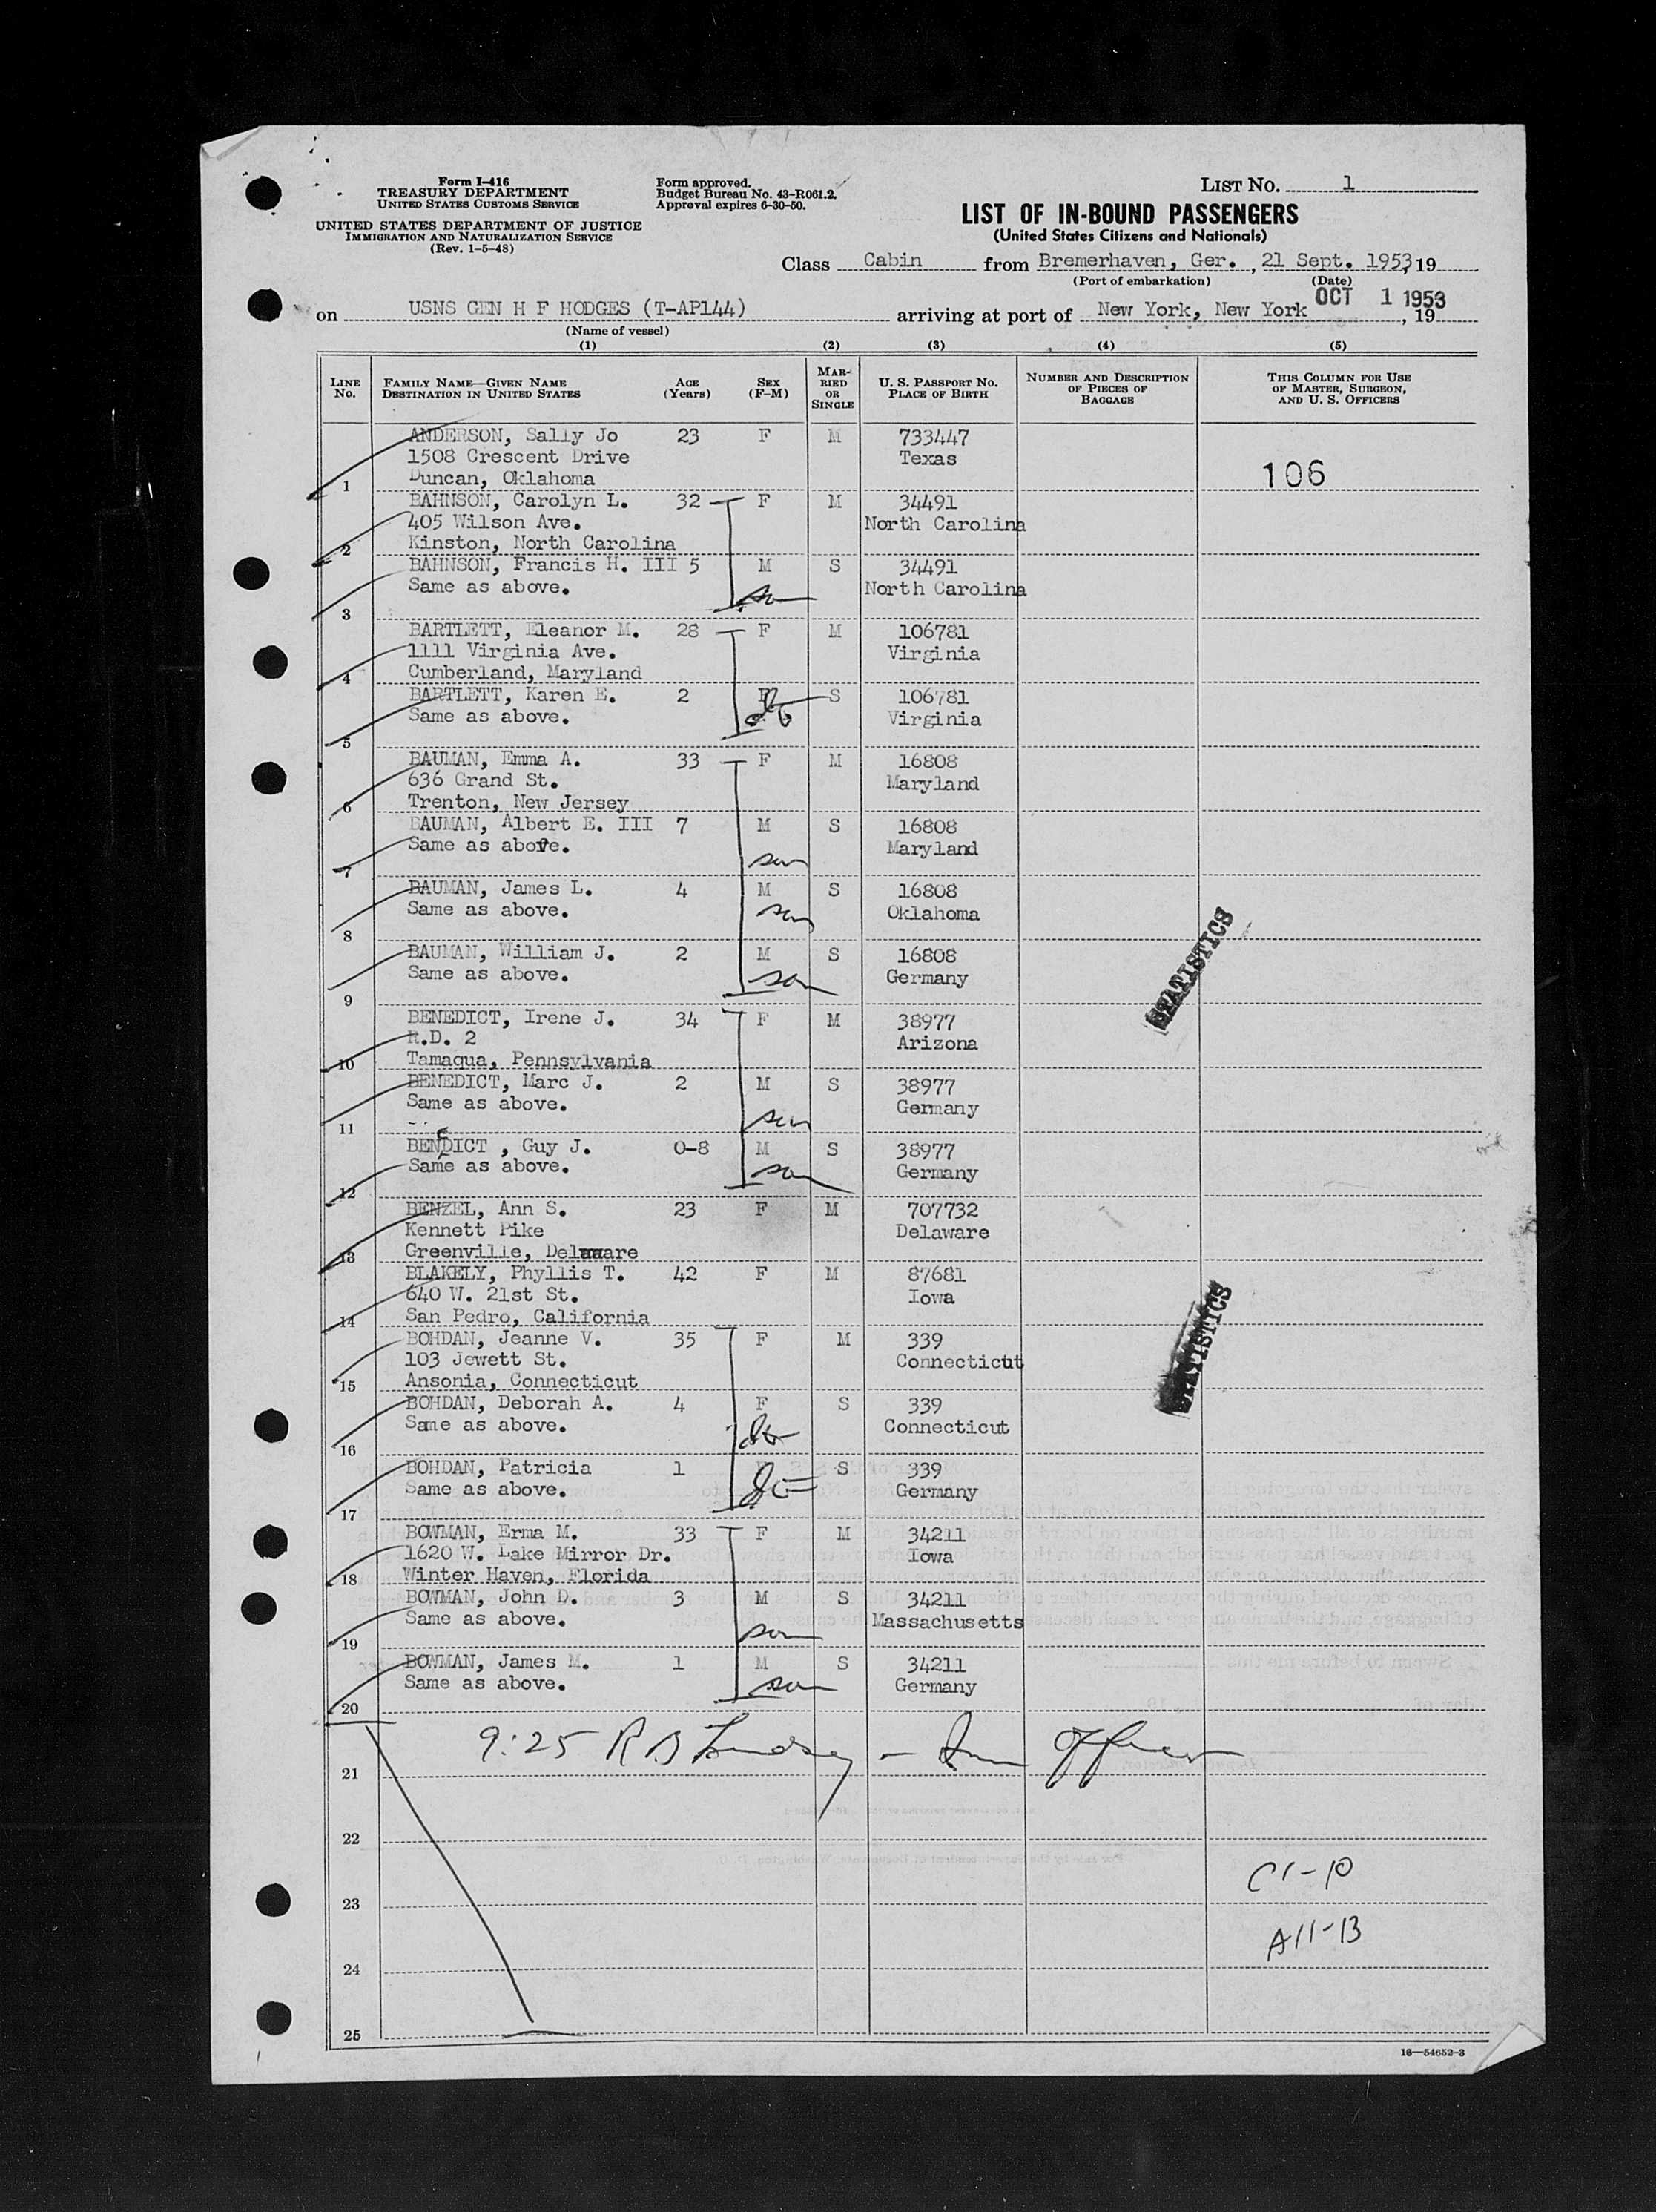 Form I-416
TREASURY DEPARTMENT
UNITED STATES CUSTOMS SERVICE
UNITED STATES DEPARTMENT OF JUSTICE
IMMIGRATION AND NATURALIZATION SERVICE
(Rev. 1-5-48)
Form approved.
Budget Bureau No. 43-R061.2.
Approval expires 6-30-50.
LIST NO. 1
LIST OF IN-BOUND PASSENGERS
(United States Citizens and Nationals)
Class Cabin from Bremerhaven, Ger., 21 Sept. 1953, 19
(Port of embarkation) (Date)
OCT 1 1953
on USNS GEN H F HODGES (T-AP144) arriving at port of New York, New York, 19
(Name of vessel)
(1) (2) (3) (4) (5)
LINE No. FAMILY NAME—GIVEN NAME DESTINATION IN UNITED STATES AGE (Years) SEX (F-M) MARRIED OR SINGLE U. S. PASSPORT NO. PLACE OF BIRTH NUMBER AND DESCRIPTION OF PIECES OF BAGGAGE THIS COLUMN FOR USE OF MASTER, SURGEON, AND U. S. OFFICERS
ANDERSON, Sally Jo 23 F M 733447
1508 Crescent Drive Texas
1 Duncan, Oklahoma 106
BAHNSON, Carolyn L. 32 F M 34491
405 Wilson Ave. North Carolina
2 Kinston, North Carolina
BAHNSON, Francis H. III 5 M S 34491
Same as above. North Carolina
3 son
BARTLETT, Eleanor M. 28 F M 106781
1111 Virginia Ave. Virginia
4 Cumberland, Maryland
BARTLETT, Karen E. 2 F S 106781
Same as above. Virginia
5
BAUMAN, Emma A. 33 F M 16808
636 Grand St. Maryland
6 Trenton, New Jersey
BAUMAN, Albert E. III 7 M S 16808
Same as above. Maryland
7 son
BAUMAN, James L. 4 M S 16808
Same as above. son Oklahoma
8
BAUMAN, William J. 2 M S 16808
Same as above. son Germany
9
STATISTICS
BENEDICT, Irene J. 34 F M 38977
R.D. 2 Arizona
10 Tamaqua, Pennsylvania
BENEDICT, Marc J. 2 M S 38977
Same as above. Germany
11 son
BENDICT , Guy J. 0-8 M S 38977
Same as above. son Germany
12
BENZEL, Ann S. 23 F M 707732
Kennett Pike Delaware
13 Greenville, Delaware
BLAKELY, Phyllis T. 42 F M 87681
640 W. 21st St. Iowa
14 San Pedro, California
BOHDAN, Jeanne V. 35 F M 339
103 Jewett St. Connecticut
15 Ansonia, Connecticut
STATISTICS
BOHDAN, Deborah A. 4 F S 339
Same as above. Connecticut
16
BOHDAN, Patricia 1 S 339
Same as above. Germany
17
BOWMAN, Erma M. 33 F M 34211
1620 W. Lake Mirror Dr. Iowa
18 Winter Haven, Florida
BOWMAN, John D. 3 M S 34211
Same as above. Massachusetts
19 son
BOWMAN, James M. 1 M S 34211
Same as above. son Germany
20
9:25 R B Lindsey - Imm Officer
21
22
C1-10
23
A11-13
24
25
16—54652-3